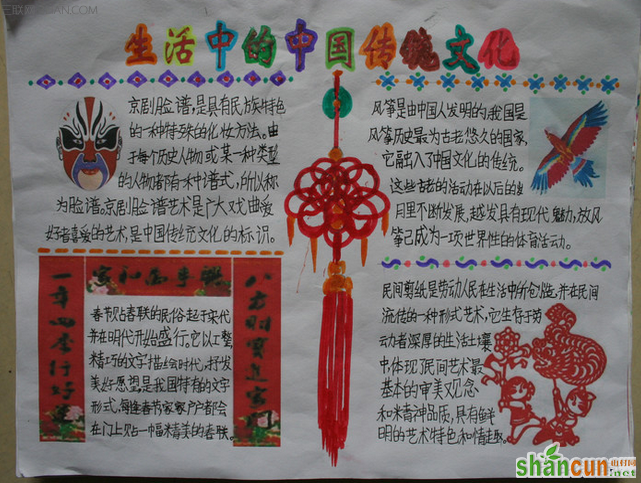 生活中的中国传统文化
京剧脸谱,是具有民族特色
的一种特殊的化妆方法。由
于每个历史人物或某一种类型
的人物都有一种谱式,所以称
为脸谱。京剧脸谱艺术是广大戏曲爱
好者喜爱的艺术,是中国传统文化的标识。
风筝是由中国人发明的,我国是
风筝历史最为古老悠久的国家,
它融入了中国文化的传统。
这些古老的活动在以后的岁
月里不断发展,越发具有现代魅力,放风
筝已成为一项世界性的体育活动。
一年四季行好运
八方财宝进家门
春节贴春联的民俗起于宋代
并在明代开始盛行。它以工整
精巧的文字描绘时代,抒发
美好愿望,是我国特有的文字
形式,每逢春节家家户户都会
在门上贴一幅精美的春联。
民间剪纸是劳动人民在生活中所创造,并在民间
流传的一种形式艺术,它生存于劳
动者深厚的生活土壤
中,体现了民间艺术最
基本的审美观念
和精神品质,具有鲜
明的艺术特色和情趣。
shancun.net